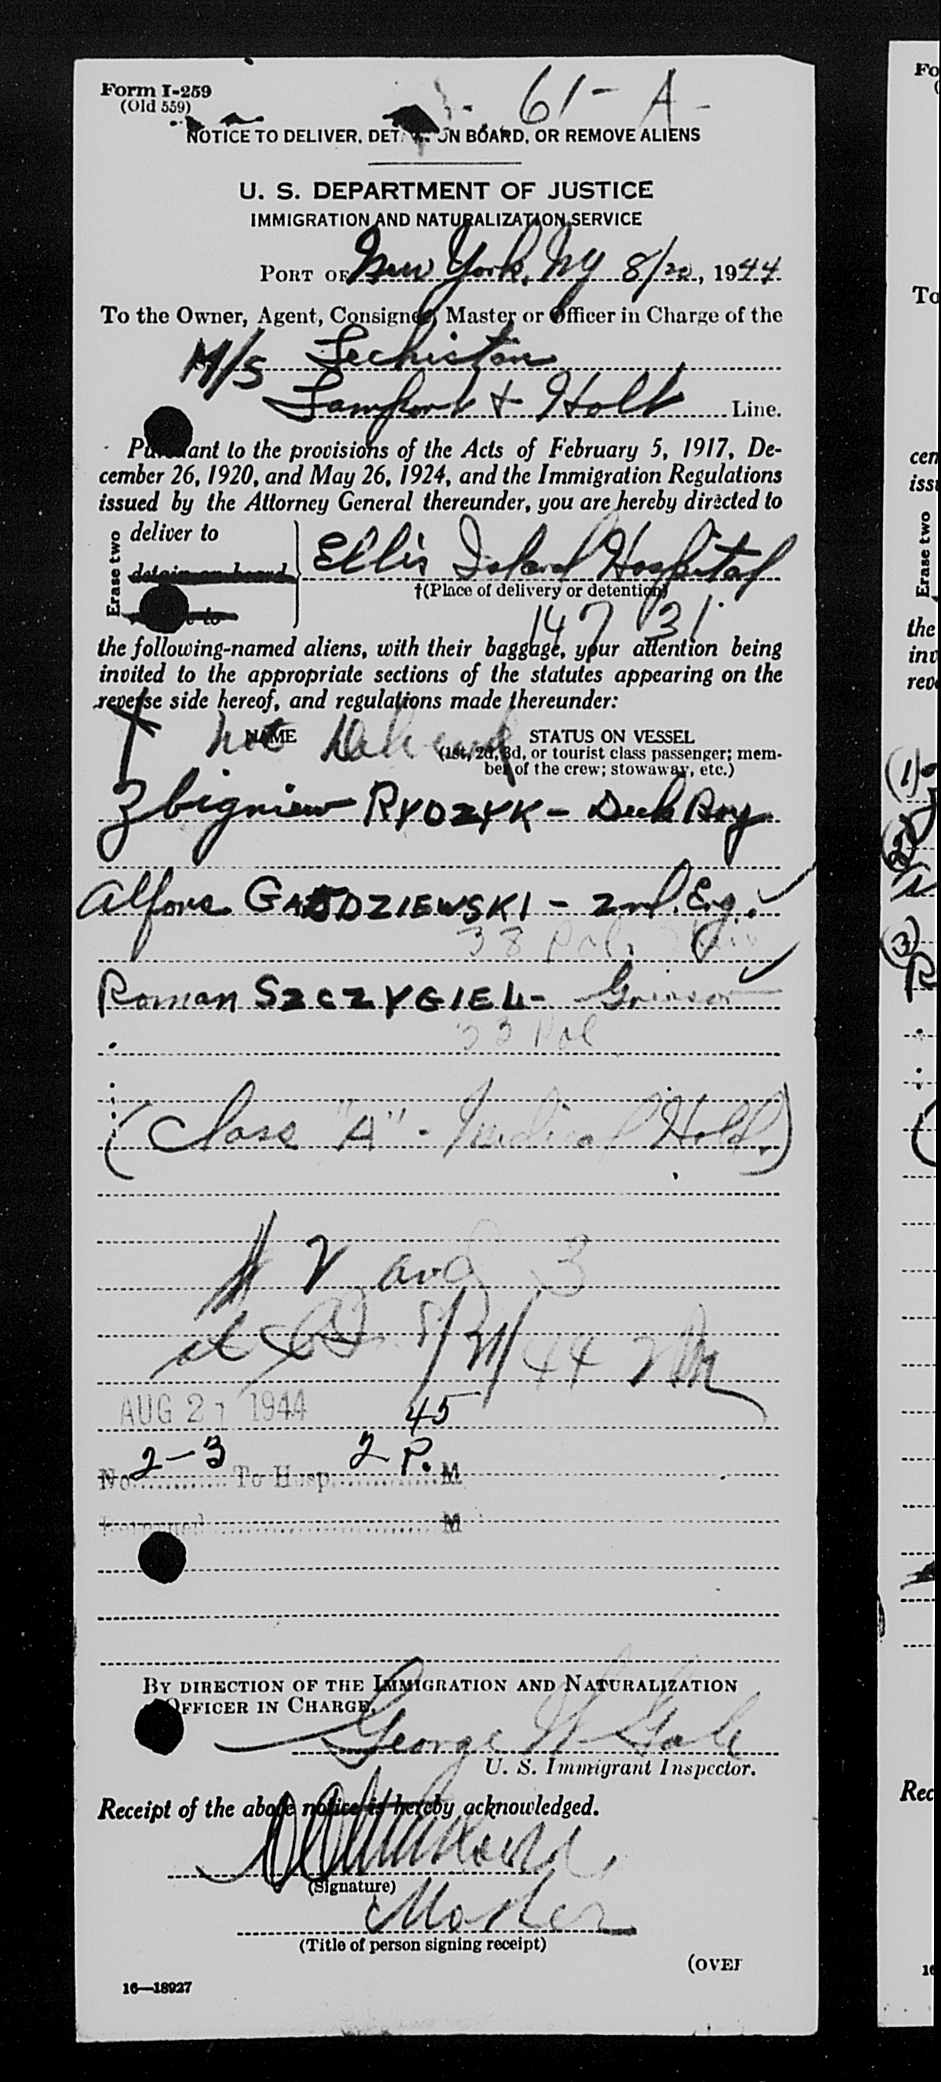 Form I-259
(Old 559)
61-A-
NOTICE TO DELIVER, DET ON BOARD, OR REMOVE ALIENS
U. S. DEPARTMENT OF JUSTICE
IMMIGRATION AND NATURALIZATION SERVICE
PORT OF New York, NY 8/20, 1944
To the Owner, Agent, Consignee, Master or Officer in Charge of the
M/S Lechistan
Lamport + Holt Line.
Pursuant to the provisions of the Acts of February 5, 1917, De-
cember 26, 1920, and May 26, 1924, and the Immigration Regulations
issued by the Attorney General thereunder, you are hereby directed to
Erase two
deliver to
detain on board
Ellis Island Hospital
†(Place of delivery or detention)
to
147 31
the following-named aliens, with their baggage, your attention being
invited to the appropriate sections of the statutes appearing on the
reverse side hereof, and regulations made thereunder:
not Delivered
NAME STATUS ON VESSEL
(1st, 2d, 3d, or tourist class passenger; mem-
ber of the crew; stowaway, etc.)
Zbigniew RYDZYK - Deck Boy
Alfons GAŁDZIEWSKI - 2nd. Eng.
38 Pol.
Roman SZCZYGIEL - Greaser
33 Pol
(Class "A" - Medical Hold.)
2 and 3
8/21/44
AUG 21 1944
45
No. 2-3 To Hosp. 2 P. M
Returned M
BY DIRECTION OF THE IMMIGRATION AND NATURALIZATION
OFFICER IN CHARGE.
George W Gale
U. S. Immigrant Inspector.
Receipt of the above notice is hereby acknowledged.
(Signature)
Master
(Title of person signing receipt)
(OVER
16—18927